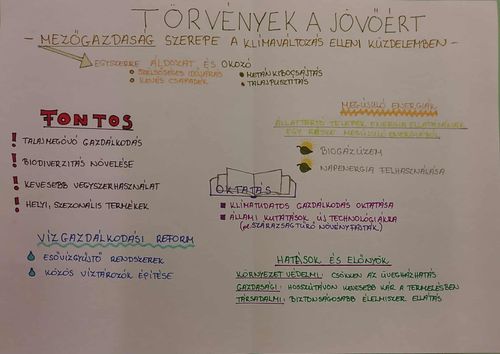 TÖRVÉNYEK A JÖVŐÉRT
- MEZŐGAZDASÁG SZEREPE A KLÍMAVÁLTOZÁS ELLENI KÜZDELEMBEN -
EGYSZERRE ÁLDOZAT ÉS OKOZÓ
SZÉLSŐSÉGES IDŐJÁRÁS
KEVÉS CSAPADÉK
METÁN KIBOCSÁJTÁS
TALAJPUSZTÍTÁS
FONTOS
! TALAJMEGÓVÓ GAZDÁLKODÁS
! BIODIVERZITÁS NÖVELÉSE
! KEVESEBB VEGYSZERHASZNÁLAT
! HELYI, SZEZONÁLIS TERMÉKEK
MEGÚJULÓ ENERGIÁK
ÁLLATTARTÓ TELEPEK ENERGIA ELLÁTÁSÁNAK
EGY RÉSZE MEGÚJULÓ ENERGIÁBÓL
BIOGÁZÜZEM
NAPENERGIA FELHASZNÁLÁSA
OKTATÁS
KLÍMATUDATOS GAZDÁLKODÁS OKTATÁSA
ÁLLAMI KUTATÁSOK ÚJ TECHNOLÓGIÁKRA
(pl. SZÁRAZSÁGTŰRŐ NÖVÉNYFAJTÁK)
VÍZGAZDÁLKODÁSI REFORM
ESŐVÍZGYŰJTŐ RENDSZEREK
KÖZÖS VÍZTÁROZÓK ÉPÍTÉSE
HATÁSOK ÉS ELŐNYÖK
KÖRNYEZET VÉDELMI: CSÖKKEN AZ ÜVEGHÁZHATÁS
GAZDASÁGI: HOSSZÚTÁVON KEVESEBB KÁR A TERMELÉSBEN
TÁRSADALMI: BIZTONSÁGOSABB ÉLELMISZER ELLÁTÁS